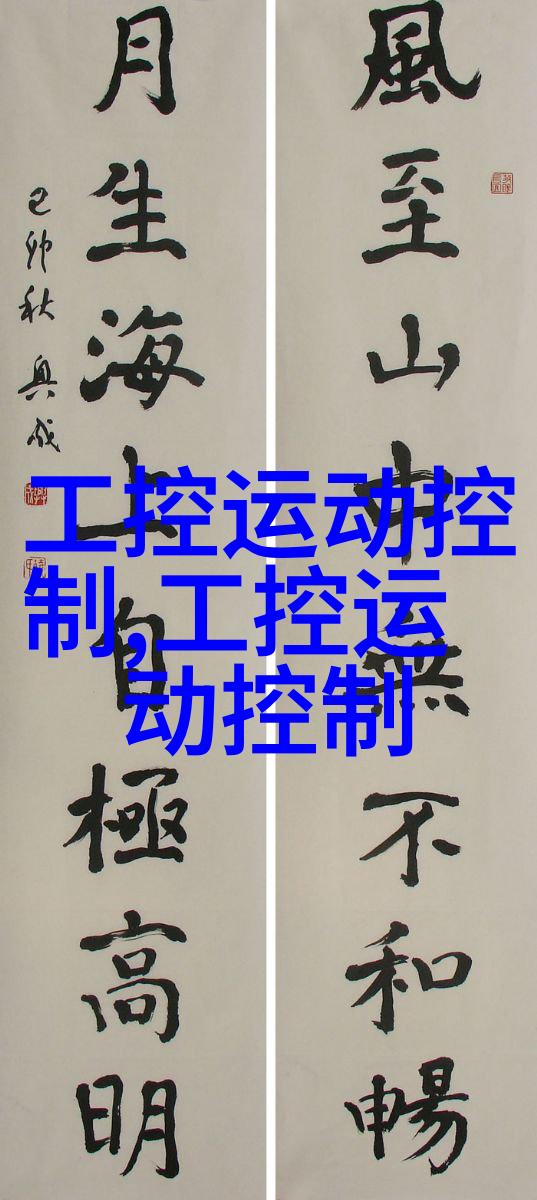 風至山中無不和暢
月生海上自極高明
己卯秋 興成
工控运动控
制,工控运
动控制